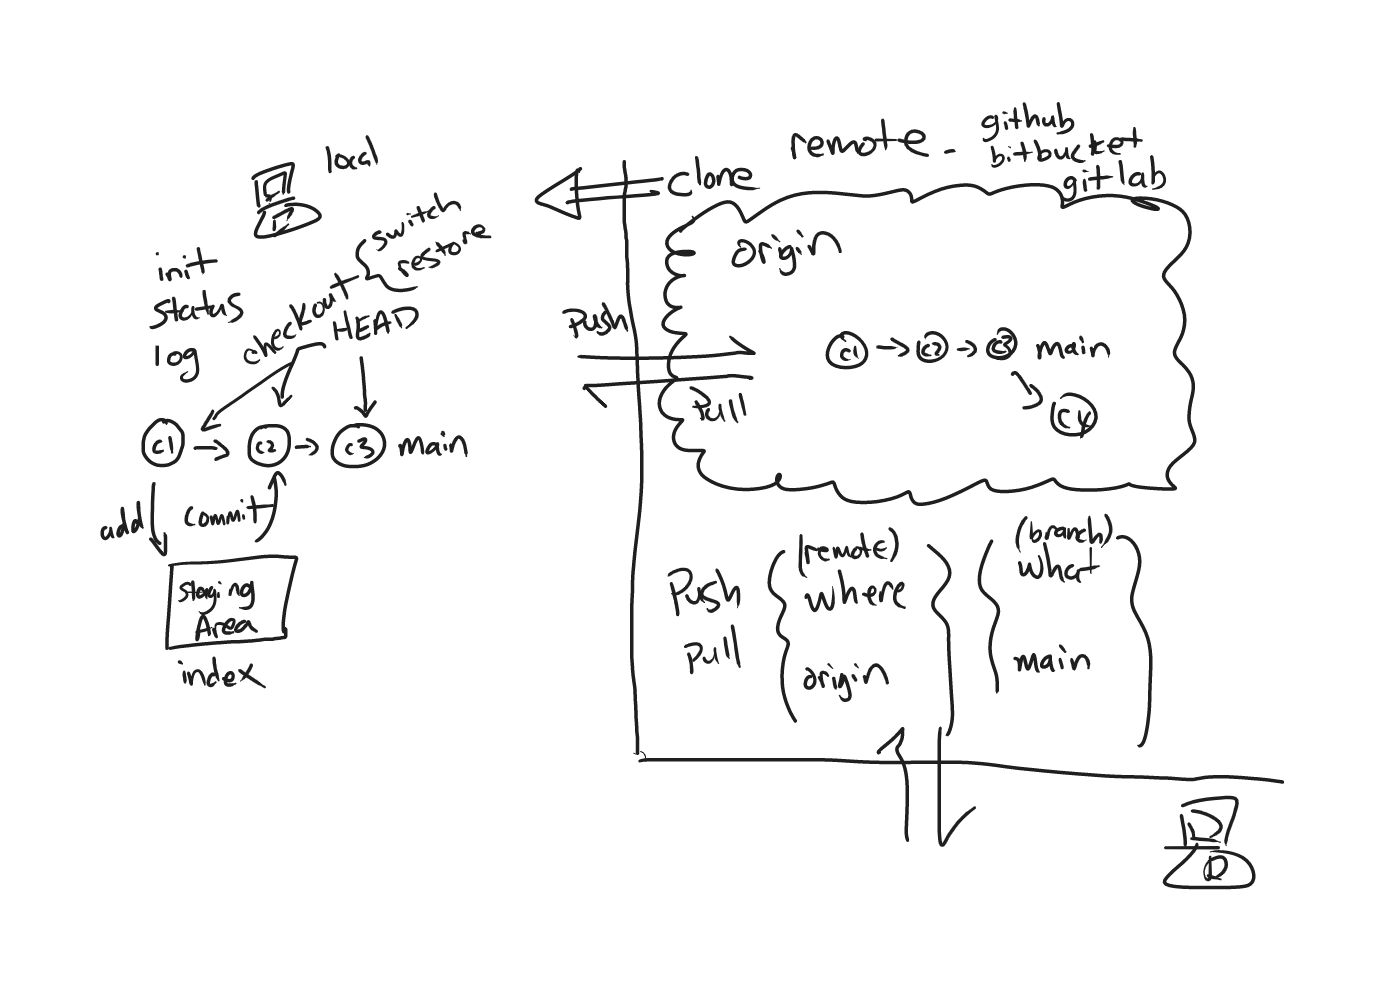 local
init
status
log
checkout
switch
restore
HEAD
c1
c2
c3
main
add
commit
Staging
Area
index
clone
remote -
github
bitbucket
gitlab
origin
Push
Pull
c1
c2
c3
main
c4
Push
Pull
(remote)
where
origin
(branch)
what
main